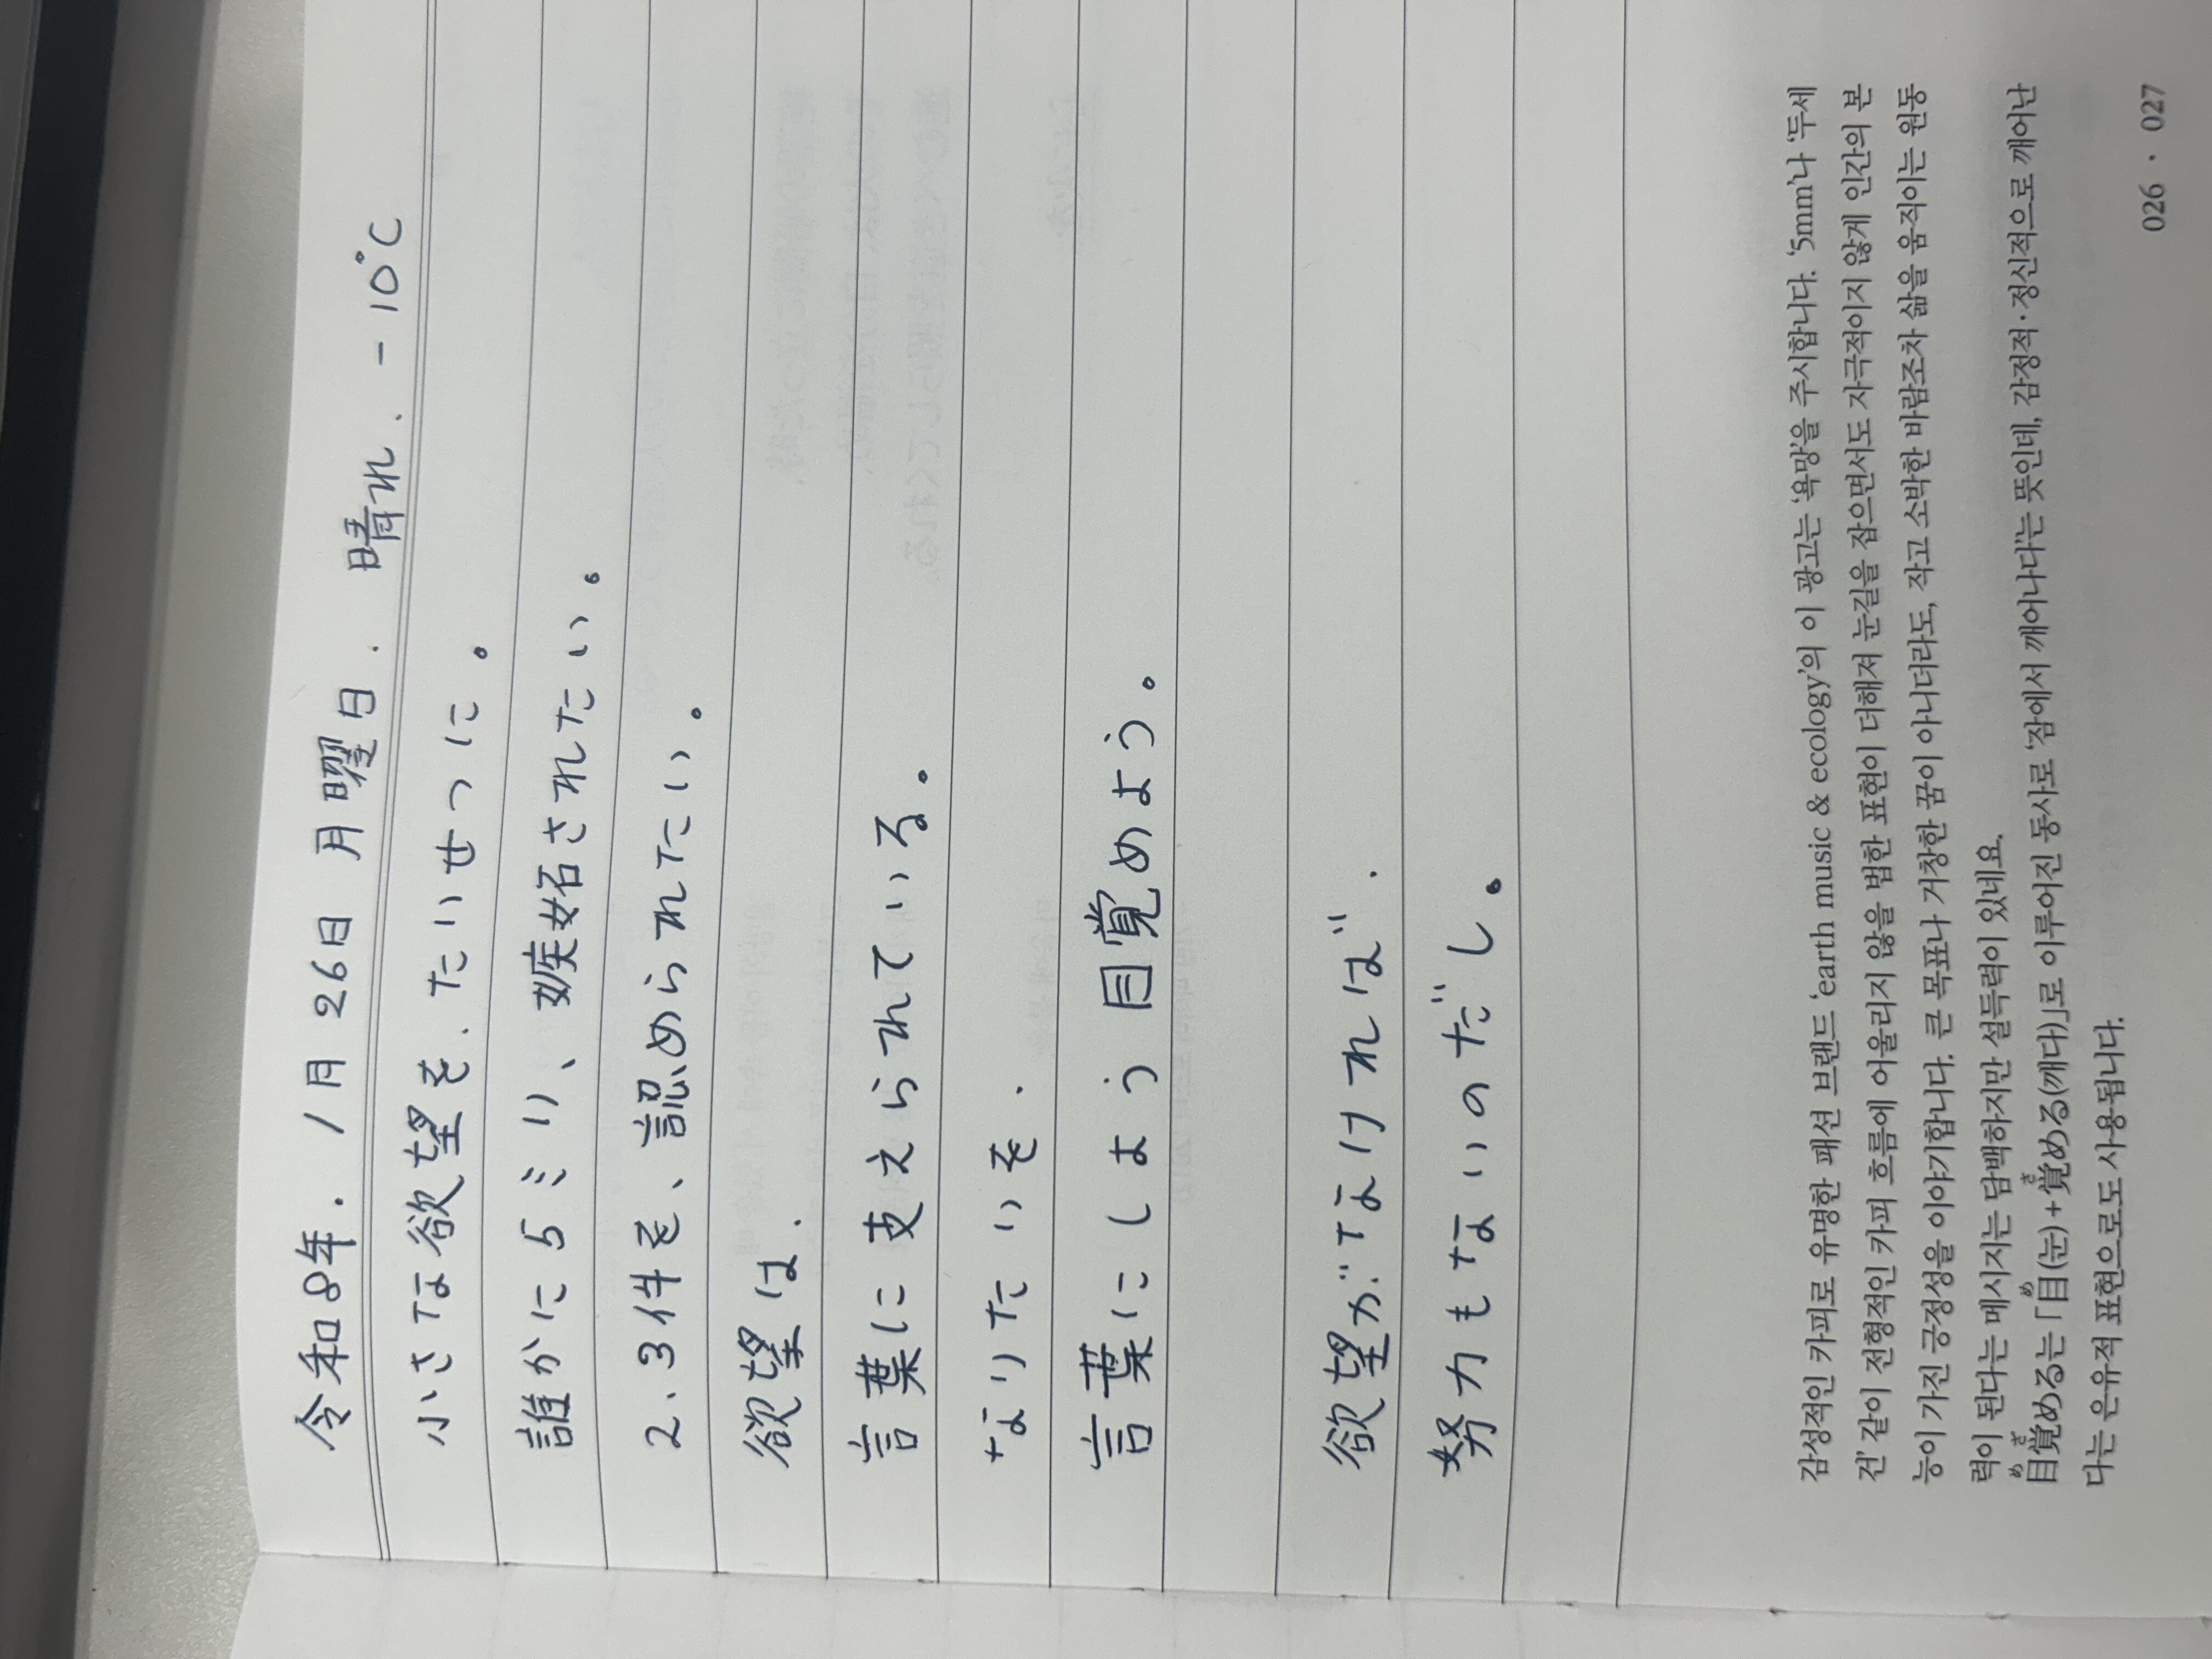 令和8年. 1月 26日 月曜日. 晴れ. -10°C
小さな欲望を. たいせつに。
誰かに5ミリ、嫉妬されたい。
2、3件を、認められたい。
欲望は.
言葉に支えられている。
なりたいを.
言葉にしよう 目覚めよう。
欲望がなければ.
努力もないのだし。
감성적인 카피로 유명한 패션 브랜드 'earth music & ecology'의 이 광고는 '욕망'을 주시합니다. '5mm'나 '두세
건' 같이 전형적인 카피 흐름에 어울리지 않을 법한 표현이 더해져 눈길을 잡으면서도 자극적이지 않게 인간의 본
능이 가진 긍정성을 이야기합니다. 큰 목표나 거창한 꿈이 아니더라도, 작고 소박한 바람조차 삶을 움직이는 원동
력이 된다는 메시지는 담백하지만 설득력이 있네요.
目覚める는 「目(눈)+覚める(깨다)」로 이루어진 동사로 '잠에서 깨어나다'는 뜻인데, 감정적·정신적으로 깨어난
다는 은유적 표현으로도 사용됩니다.
026 · 027